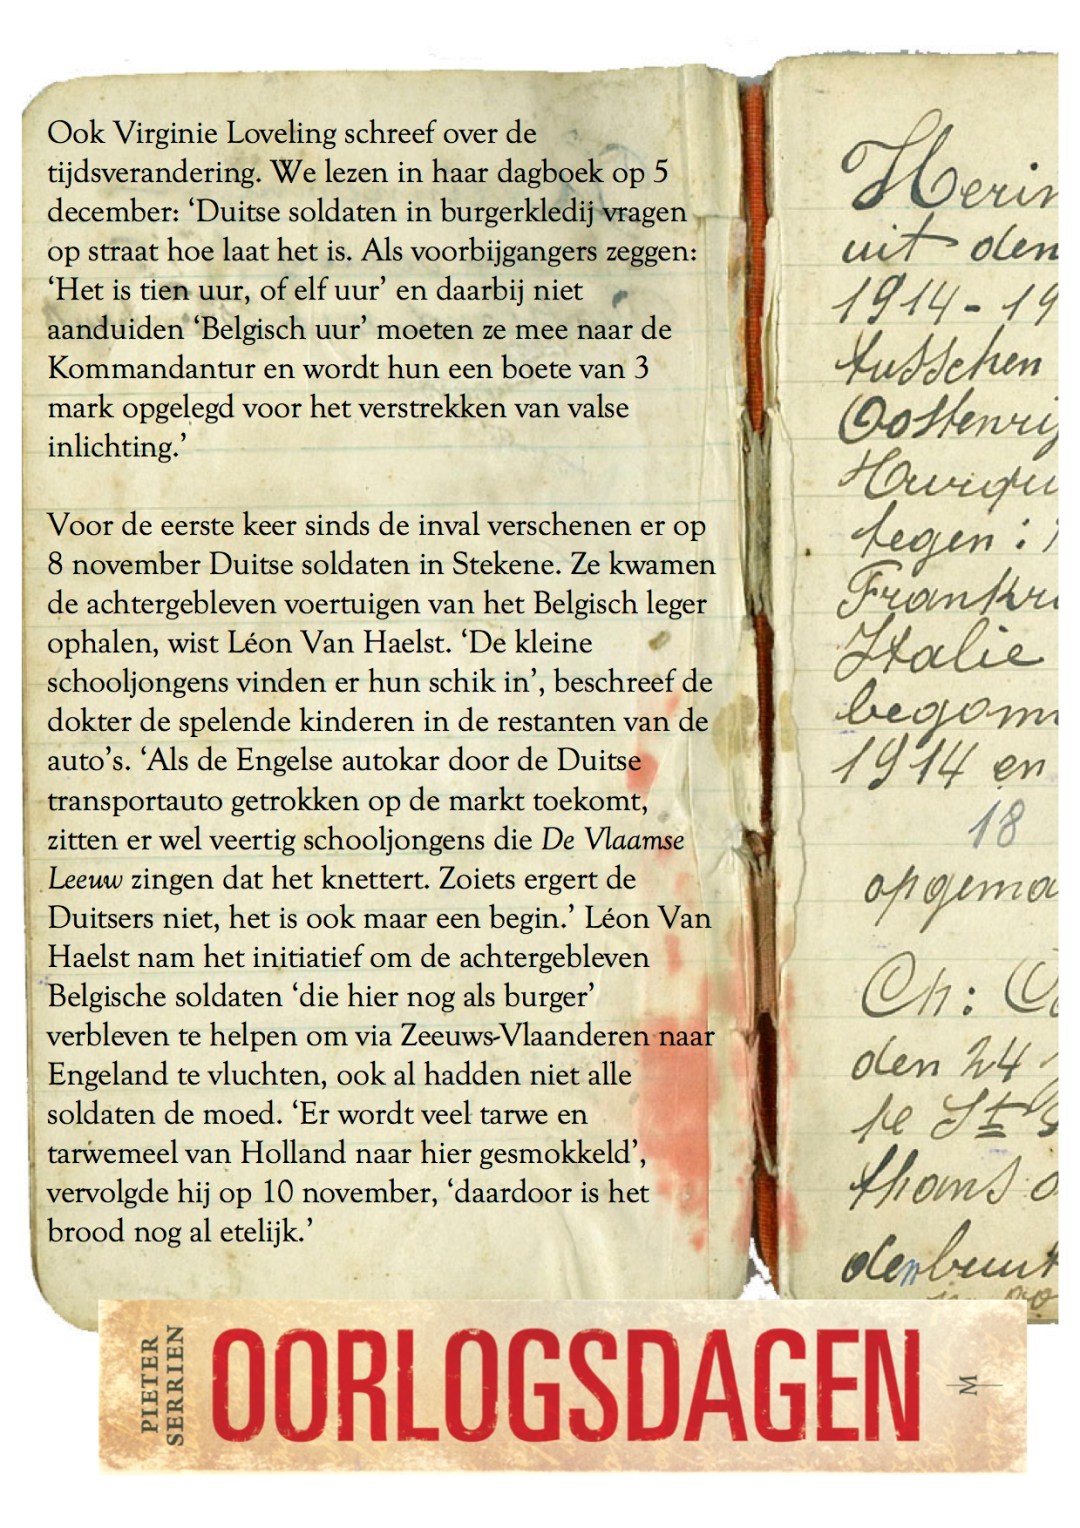 Ook Virginie Loveling schreef over de
tijdsverandering. We lezen in haar dagboek op 5
december: ‘Duitse soldaten in burgerkledij vragen
op straat hoe laat het is. Als voorbijgangers zeggen:
‘Het is tien uur, of elf uur’ en daarbij niet
aanduiden ‘Belgisch uur’ moeten ze mee naar de
Kommandantur en wordt hun een boete van 3
mark opgelegd voor het verstrekken van valse
inlichting.’
Voor de eerste keer sinds de inval verschenen er op
8 november Duitse soldaten in Stekene. Ze kwamen
de achtergebleven voertuigen van het Belgisch leger
ophalen, wist Léon Van Haelst. ‘De kleine
schooljongens vinden er hun schik in’, beschreef de
dokter de spelende kinderen in de restanten van de
auto’s. ‘Als de Engelse autokar door de Duitse
transportauto getrokken op de markt toekomt,
zitten er wel veertig schooljongens die De Vlaamse
Leeuw zingen dat het knettert. Zoiets ergert de
Duitsers niet, het is ook maar een begin.’ Léon Van
Haelst nam het initiatief om de achtergebleven
Belgische soldaten ‘die hier nog als burger’
verbleven te helpen om via Zeeuws-Vlaanderen naar
Engeland te vluchten, ook al hadden niet alle
soldaten de moed. ‘Er wordt veel tarwe en
tarwemeel van Holland naar hier gesmokkeld’,
vervolgde hij op 10 november, ‘daardoor is het
brood nog al etelijk.’
Herin
uit den
1914-19
tusschen
Oostenrij
tegen :
Frankr
Italie
begonn
1914 en
18
opgema
Ch:
den 24
te St
thans
PIETER
SERRIEN
OORLOGSDAGEN
M